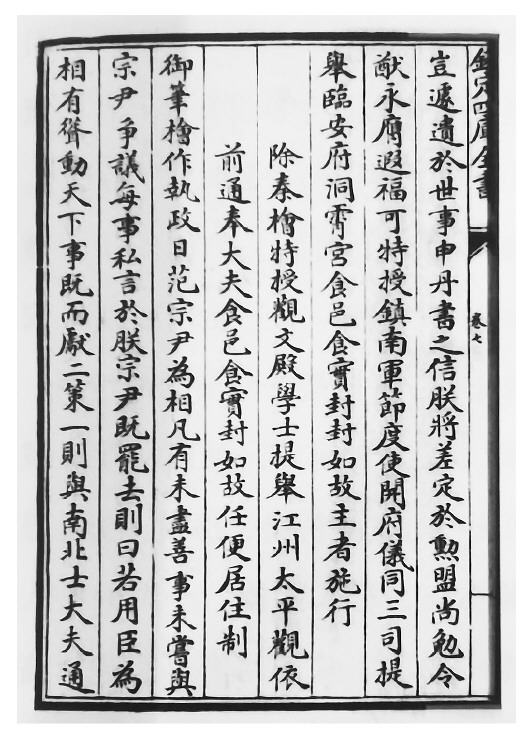 欽定四庫全書
卷七
豈遽遺於世事申丹書之信朕將差定於勲盟尚勉令
猷永膺遐福可特授鎮南軍節度使開府儀同三司提
舉臨安府洞霄宮食邑食實封封如故主者施行
除秦檜特授觀文殿學士提舉江州太平觀依
前通奉大夫食邑食實封如故任便居住制
御筆檜作執政日范宗尹為相凡有未盡善事未嘗與
宗尹爭議每事私言於朕宗尹既罷去則曰若用臣為
相有聳動天下事既而獻二策一則與南北士大夫通